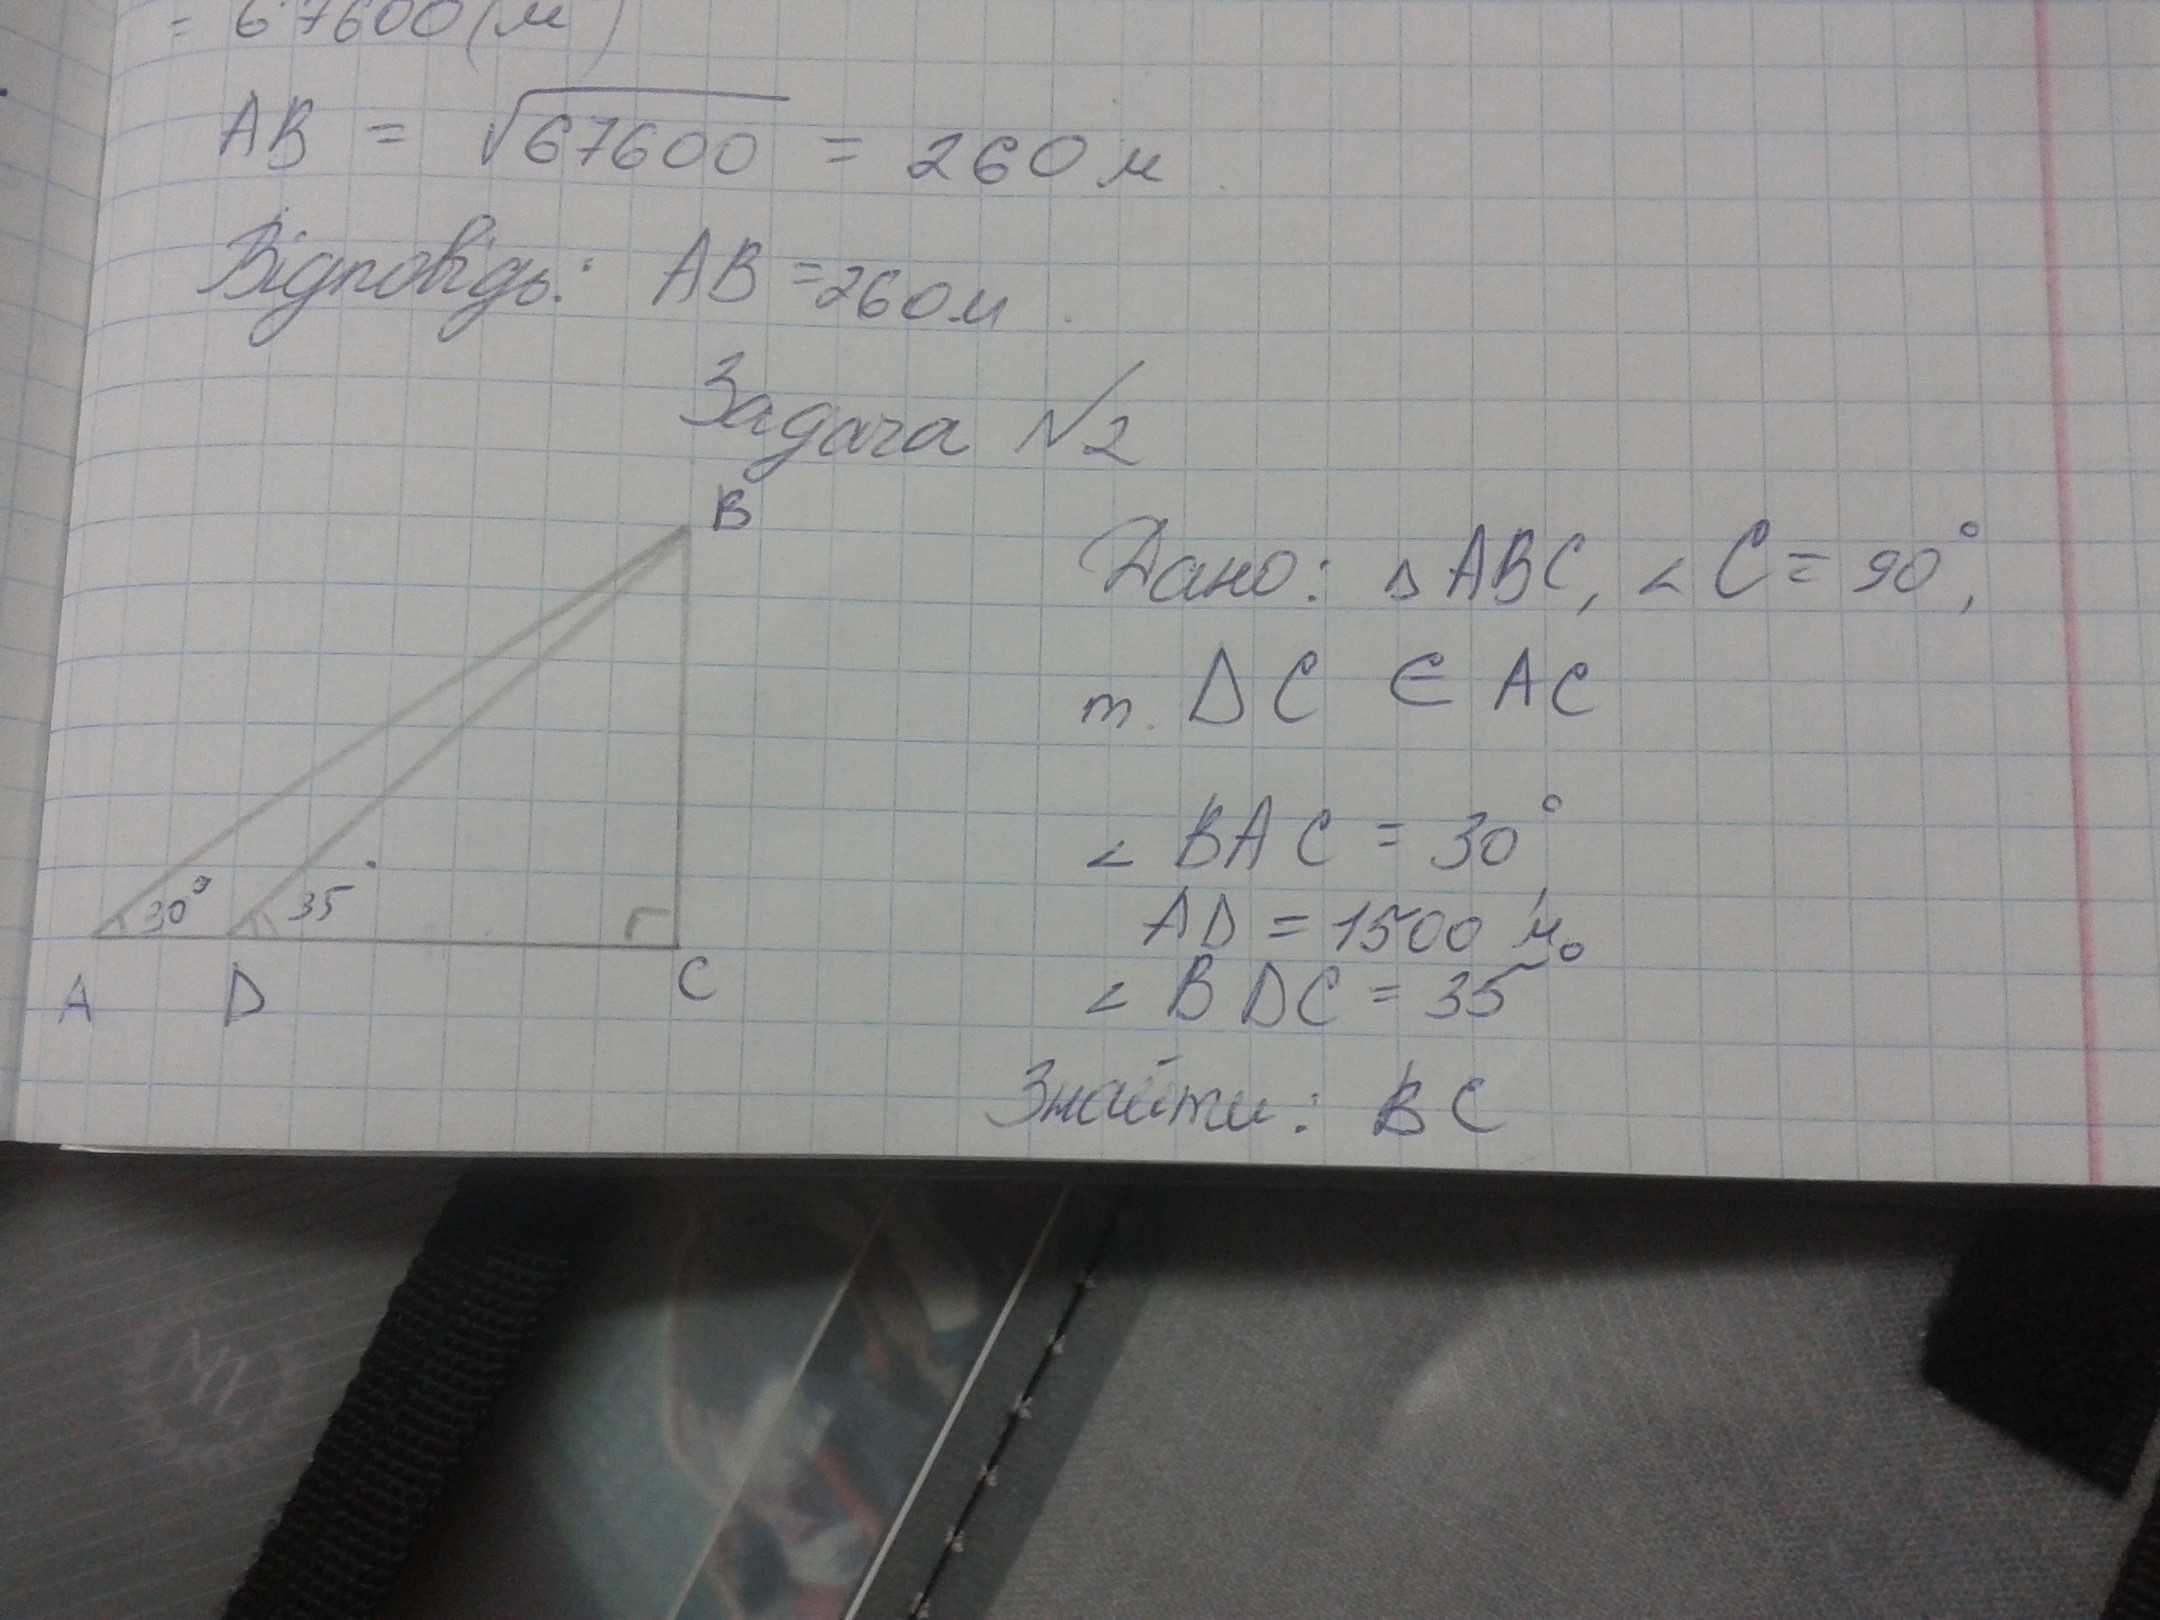 = 67600 (м)
AB = √67600 = 260 м
Відповідь: AB = 260м.
Задача №2
B
30°
35°
A D C
Дано: △ABC, ∠C = 90°,
т. DC ∈ AC
∠BAC = 30°,
AD = 1500 м
∠BDC = 35°
Знайти: BC